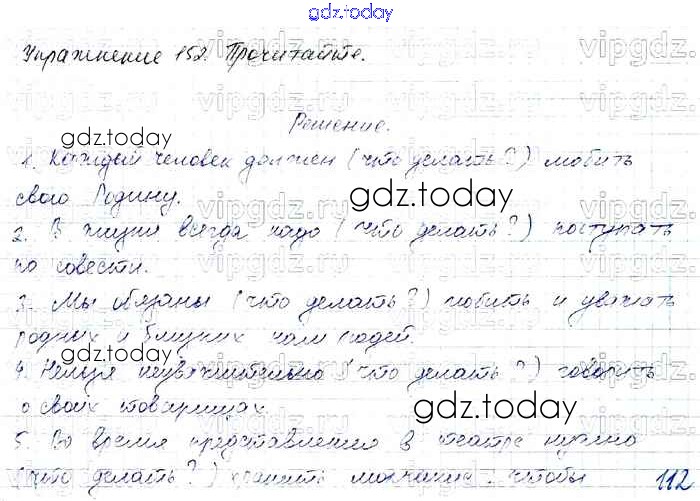 gdz.today
Упражнение 152. Прочитайте.
Решение.
1. Каждый человек должен (что делать?) любить
свою Родину.
2. В жизни всегда надо (что делать?) поступать
по совести.
3. Мы обязаны (что делать?) любить и уважать
родных и близких нам людей.
4. Нельзя неуважительно (что делать?) говорить
о своих товарищах.
5. Во время представления в театре нужно
(что делать?) хранить молчание, чтобы
112
gdz.today
gdz.today
gdz.today
gdz.today
vipgdz.ru